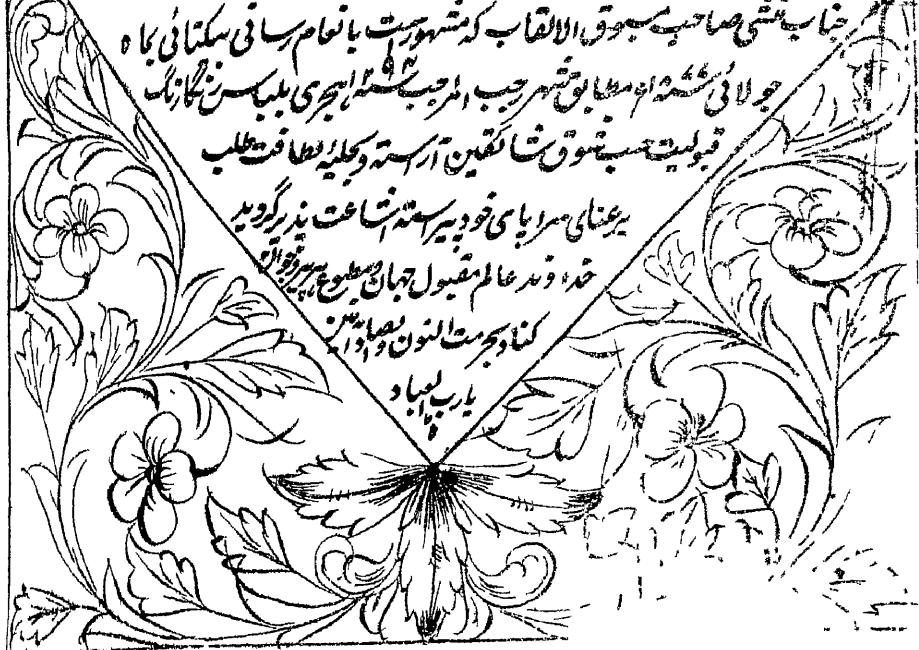 جناب منشی صاحب مسبوق الالقاب که مشهورست بانعام رسانی یکتائی بماه
جولائی مطابق شهر رجب المرجب هجری بلباس زنگارنگ
قبولیت حسب شوق شائقین آراسته و بحلیهٔ لطافت طلب
برعنای سراپای خود پیراسته اشاعت پذیر گردید
خداوند عالم مقبول جهان و مطبوع
کناد بحرمت النون والصاد آمین
یا رب العباد